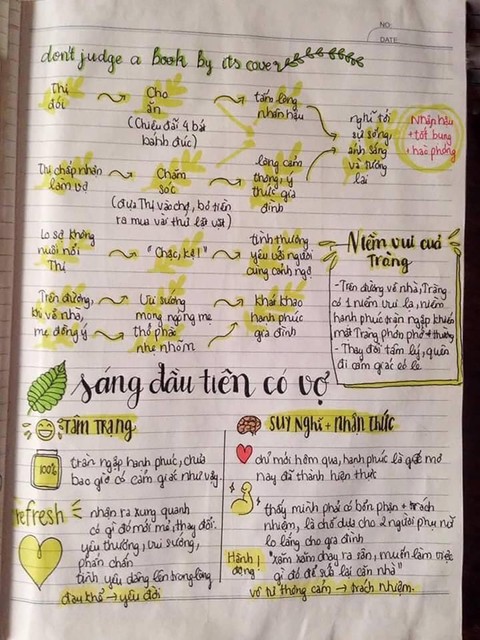 NO:
DATE:
don't judge a book by its cover
Thị đói → Cho ăn → tấm lòng nhân hậu
(Chiêu đãi 4 bát bánh đúc)
nghĩ tới sự sống, ánh sáng và tương lai
Nhân hậu
+ tốt bụng
+ hào phóng
Thị chấp nhận làm vợ → Chăm sóc → lòng cảm thông, ý thức gia đình
(đưa Thị vào chợ, bỏ tiền ra mua vài thứ lặt vặt)
Lo sợ không nuôi nổi Thị → "Chậc, kệ!" → tình thương yêu với người cùng cảnh ngộ
Trên đường, khi về nhà, mẹ đồng ý → Vui sướng mong ngóng mẹ thở phào nhẹ nhõm → Khát khao hạnh phúc gia đình
Niềm vui của Tràng
- Trên đường về nhà, Tràng
có 1 niềm vui lạ, niềm
hạnh phúc tràn ngập khiến
mặt Tràng phớn phở + thương
- Thay đổi tâm lý, quên
đi cảm giác cô lẻ
sáng đầu tiên có vợ
TÂM TRẠNG
100%
tràn ngập hạnh phúc, chưa
bao giờ có cảm giác như vậy.
refresh
nhận ra xung quanh
có gì đó mới mẻ, thay đổi.
yêu thương, vui sướng,
phấn chấn
tình yêu dâng lên trong lòng
đau khổ → yêu đời
SUY NGHĨ + NHẬN THỨC
chỉ mới hôm qua, hạnh phúc là giấc mơ
nay đã thành hiện thực
thấy mình phải có bổn phận + trách
nhiệm, là chỗ dựa cho 2 người phụ nữ
lo lắng cho gia đình
Hành động: "xăm xăm chạy ra sân, muốn làm việc
gì đó để sửa lại căn nhà"
vô tư thông cảm → trách nhiệm.